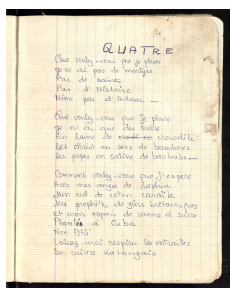 QUATRE
Que voulez-vous que je pleure
Je n'ai pas de martyrs
Pas de saints
Pas d'Histoire
Même pas d'Adam —
Que voulez-vous que je pleure
Je n'ai que des
En larme de crocodile
Des en sexe de bambous
Des papes en salive de baobabs —
Comment voulez-vous que j'espère
Avec mes anges de raphia
Mon ciel de coton caraïbe
Mes prophètes de gins britanniques
Et mon espoir de canne à sucre
Plantée à Cuba
Non Pitié
Laissez-moi respirer les entrailles
Du cuivre katangais